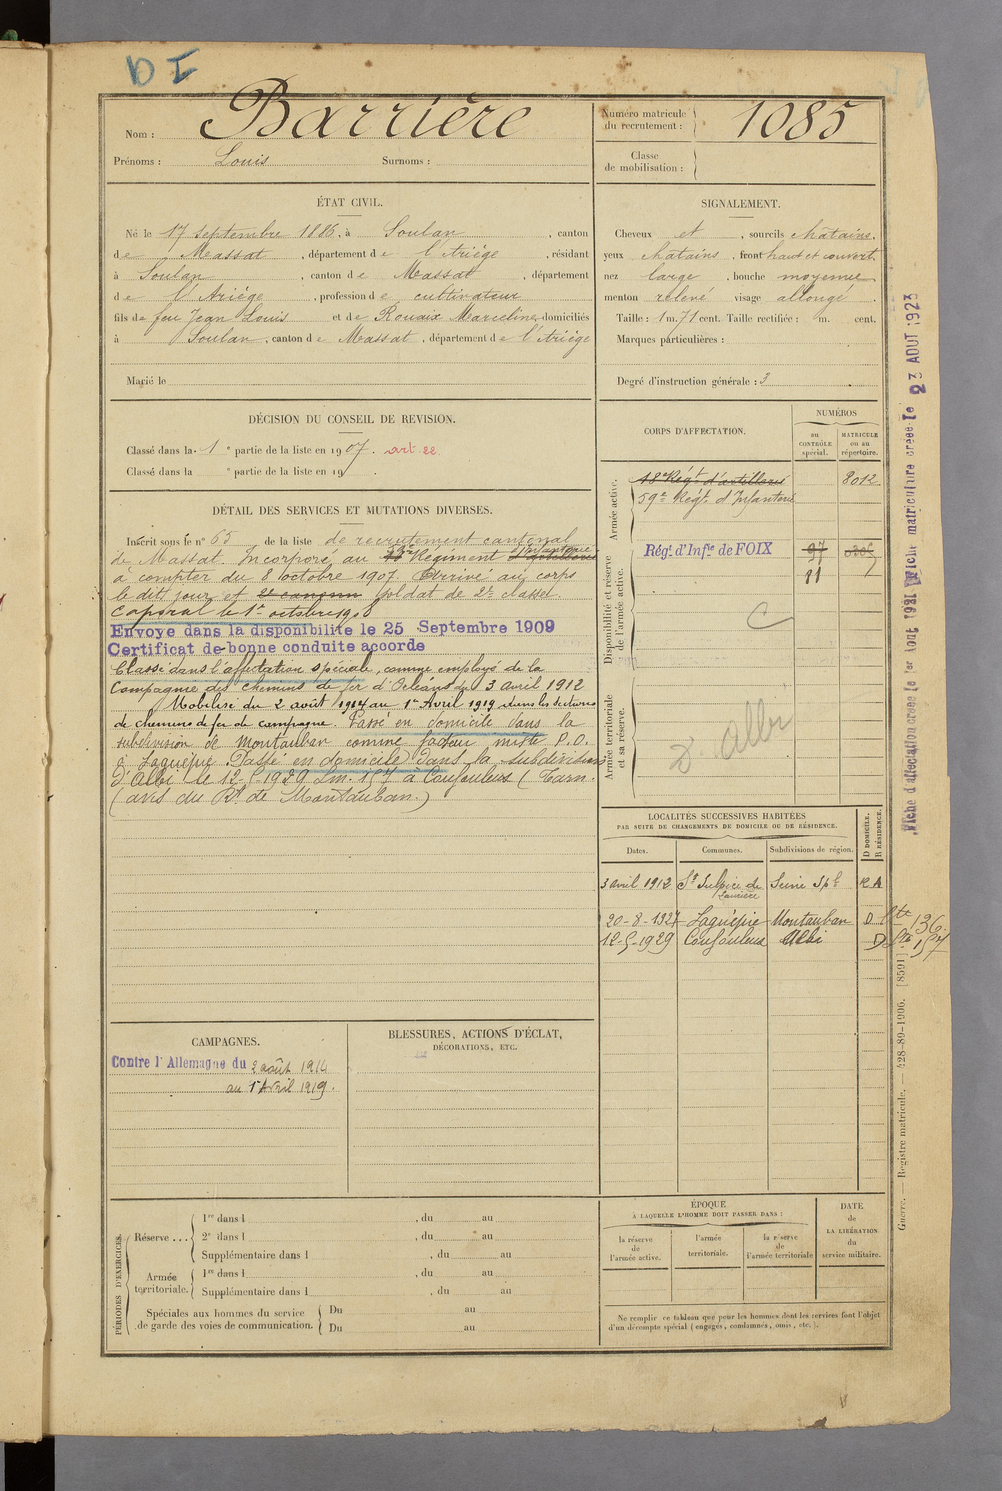 D I
Nom : Barrière
Prénoms : Louis Surnoms :
Numéro matricule du recrutement : 1085
Classe de mobilisation :
ÉTAT CIVIL.
Né le 17 septembre 1886, à Soulan, canton
de Massat, département de l'Ariège, résidant
à Soulan, canton de Massat, département
de l'Ariège, profession de cultivateur
fils de feu Jean Louis et de Rouaix Marceline, domiciliés
à Soulan, canton de Massat, département de l'Ariège
Marié le
SIGNALEMENT.
Cheveux et, sourcils chatains,
yeux chatains, front haut et couvert,
nez large, bouche moyenne
menton relevé visage allongé.
Taille : 1 m. 71 cent. Taille rectifiée : m. cent.
Marques particulières :
Degré d'instruction générale : 3
DÉCISION DU CONSEIL DE REVISION.
Classé dans la 1e partie de la liste en 1907. art 22
Classé dans la e partie de la liste en 19 .
DÉTAIL DES SERVICES ET MUTATIONS DIVERSES.
Inscrit sous le n° 65 de la liste de recrutement cantonal
de Massat. Incorporé au 59e Régiment d'Infanterie
à compter du 8 octobre 1907. Arrivé au corps
le dit jour et 2e canonn soldat de 2e classe.
Caporal le 1er octobre 1908
Envoyé dans la disponibilité le 25 Septembre 1909
Certificat de bonne conduite accordé
Classé dans l'affectation spéciale, comme employé de la
Compagnie des chemins de fer d'Orléans du 3 avril 1912
Mobilisé du 2 août 1914 au 1er Avril 1919 dans les sections
de chemins de fer de campagne. Passé en domicile dans la
subdivision de Montauban comme facteur mixte P.O.
à Laguépie. Passé en domicile dans la subdivision
d'Albi le 12-5-1929 Lm. 157 à Coufouleux (Tarn.
(avis du Rt de Montauban.)
CORPS D'AFFECTATION.
NUMÉROS
au CONTRÔLE spécial.
MATRICULE ou au répertoire.
Armée active.
18e Régt d'artillerie 8012
59e Régt d'Infanterie
Disponibilité et réserve de l'armée active.
Régt d'Infie de FOIX 97
11
C
Armée territoriale et sa réserve.
D. Albi
LOCALITÉS SUCCESSIVES HABITÉES
PAR SUITE DE CHANGEMENTS DE DOMICILE OU DE RÉSIDENCE.
Dates. Communes. Subdivisions de région. D DOMICILE. R RÉSIDENCE.
3 avril 1912 St Sulpice de Seine Spl R A
20-8-1927 Laguépie Montauban D Lte 136
12-5-1929 Coufouleux Albi D Lte 157
CAMPAGNES.
Contre l'Allemagne du 2 août 1914
au 1er Avril 1919.
BLESSURES, ACTIONS D'ÉCLAT,
DÉCORATIONS, ETC.
PÉRIODES D'EXERCICES.
Réserve ...
1re dans l , du au
2e dans l , du au
Supplémentaire dans l , du au
Armée territoriale.
1re dans l , du au
Supplémentaire dans l , du au
Spéciales aux hommes du service de garde des voies de communication.
Du au
Du au
ÉPOQUE
À LAQUELLE L'HOMME DOIT PASSER DANS :
la réserve de l'armée active.
l'armée territoriale.
la réserve de l'armée territoriale
DATE de LA LIBÉRATION du service militaire.
Ne remplir ce tableau que pour les hommes dont les services font l'objet
d'un décompte spécial (engagés, condamnés, omis, etc.).
Fiche d'affectation créée le 1er Aout 1921 Fiche matriculture créée le 23 AOUT 1923
Guerre. — Registre matricule. — 428-89-1906. [8591]